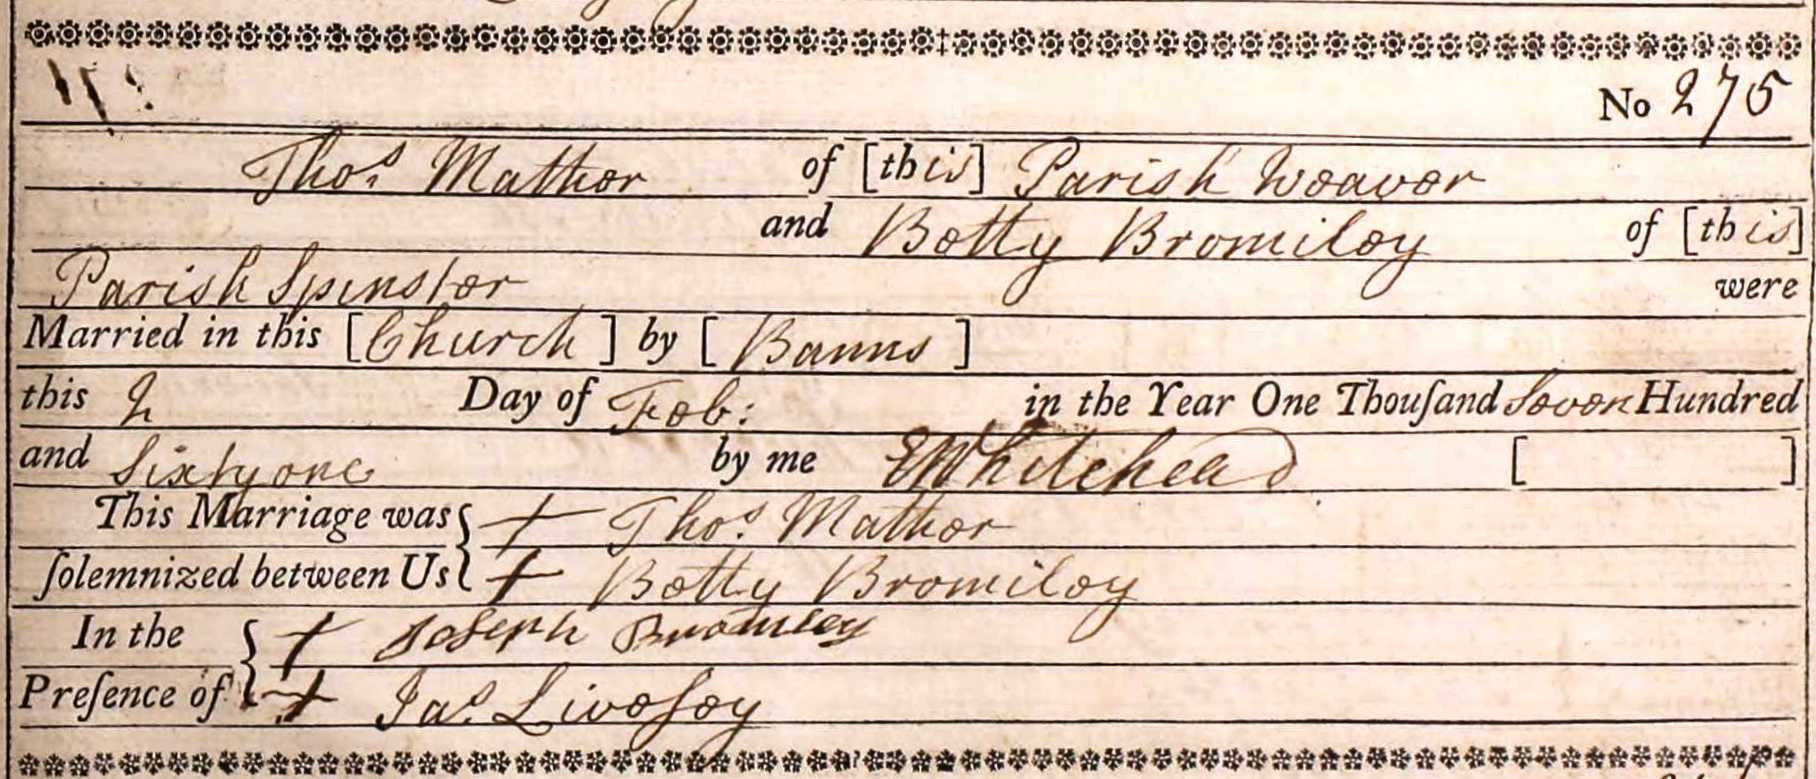 No 275
Thos. Mather of [this] Parish Weaver
and Betty Bromiley of [this]
Parish Spinster were
Married in this [Church] by [Banns]
this 2 Day of Feb: in the Year One Thouſand Seven Hundred
and Sixty one by me EWhitehead [ ]
This Marriage was { + Thos. Mather
ſolemnized between Us { + Betty Bromiley
In the { + Joseph Bromiley
Preſence of { + Jas. Liveſey